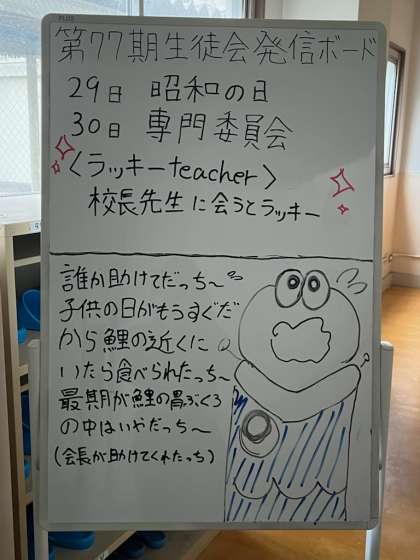 PLUS
第77期生徒会発信ボード
29日 昭和の日
30日 専門委員会
〈ラッキーteacher〉
校長先生に会うとラッキー
誰か助けてだっち〜
子供の日がもうすぐだ
から鯉の近くに
いたら食べられたっち〜
最期が鯉の胃ぶくろ
の中はいやだっち〜
(会長が助けてくれたっち)